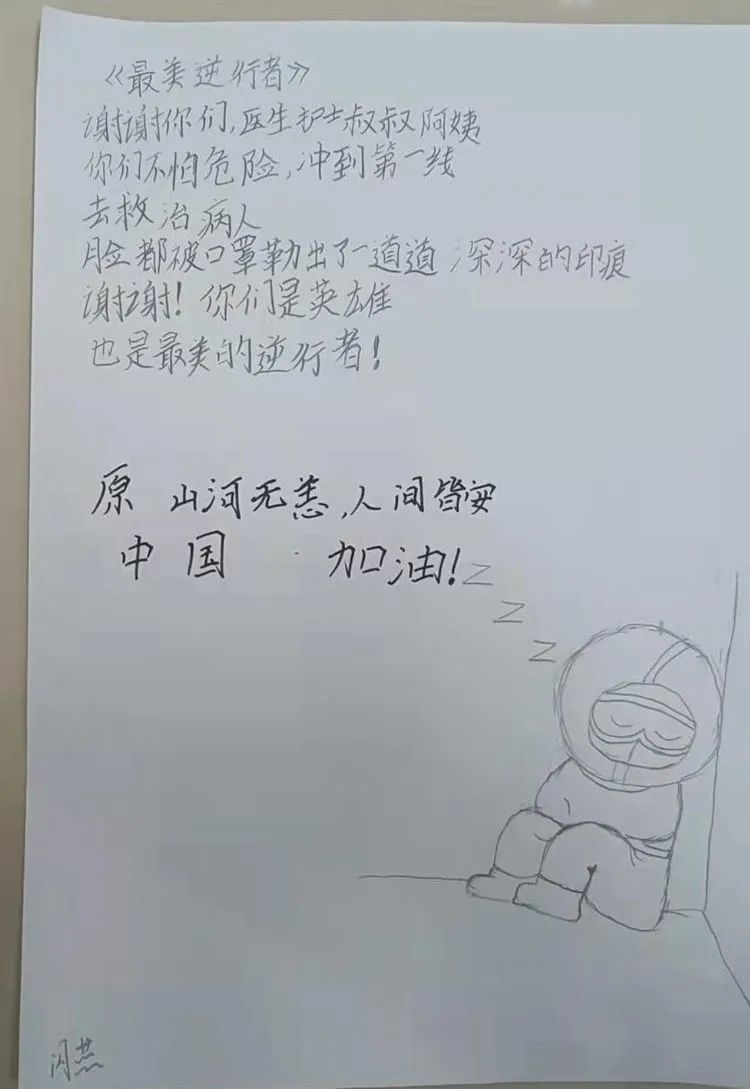 《最美逆行者》
谢谢你们,医生护士叔叔阿姨
你们不怕危险,冲到第一线
去救治病人
脸都被口罩勒出了一道道 深深的印痕
谢谢!你们是英雄
也是最美的逆行者!
原 山河无恙,人间皆安
中国 · 加油!
Z
Z
Z
闪燕